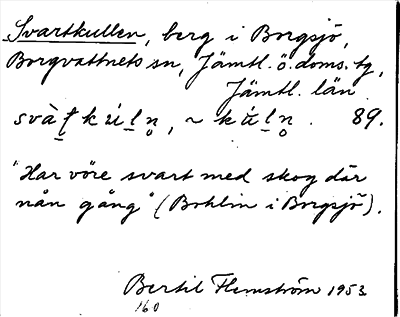 Svartkullen, berg i Borgsjö,
Borgvattnets sn, Jämtl. ö. doms. tg,
Jämtl. län.
89.
"Har vöre svart med skog där
nån gång" (Bohlin i Borgsjö).
Bertil Flemström 1953
160